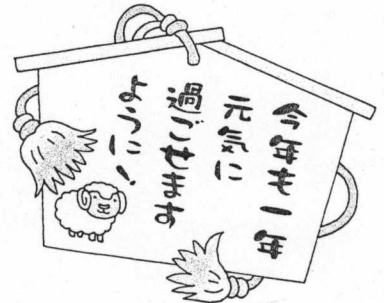 今年も一年
元気に
過ごせます
ように!